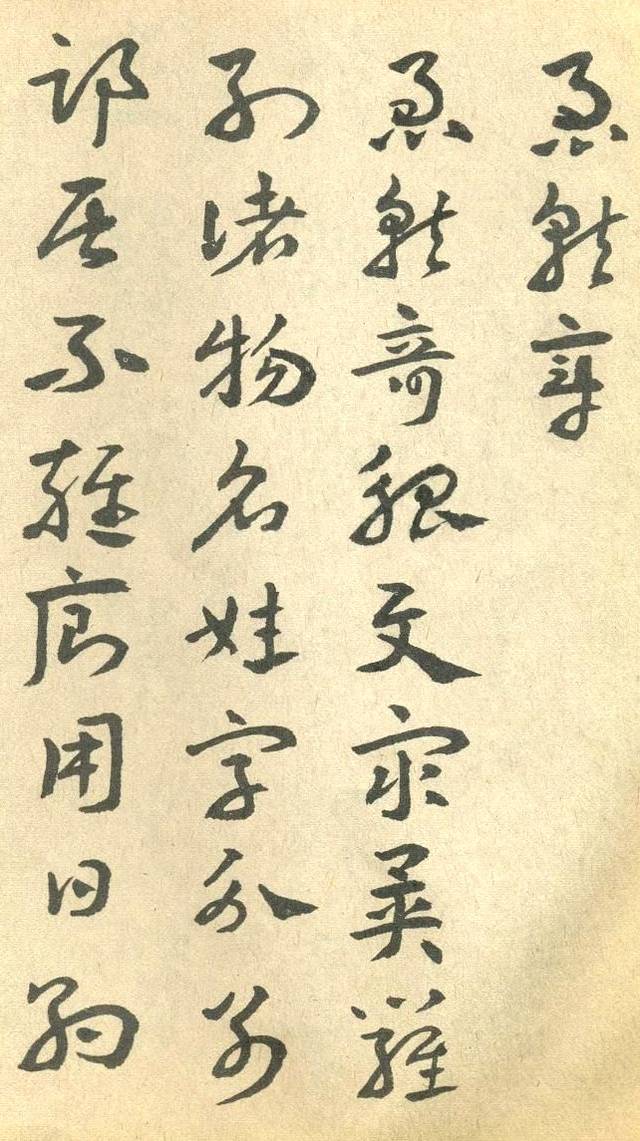 急就章
急就奇觚與眾異羅
列諸物名姓字分別
部居不雜廁用日約